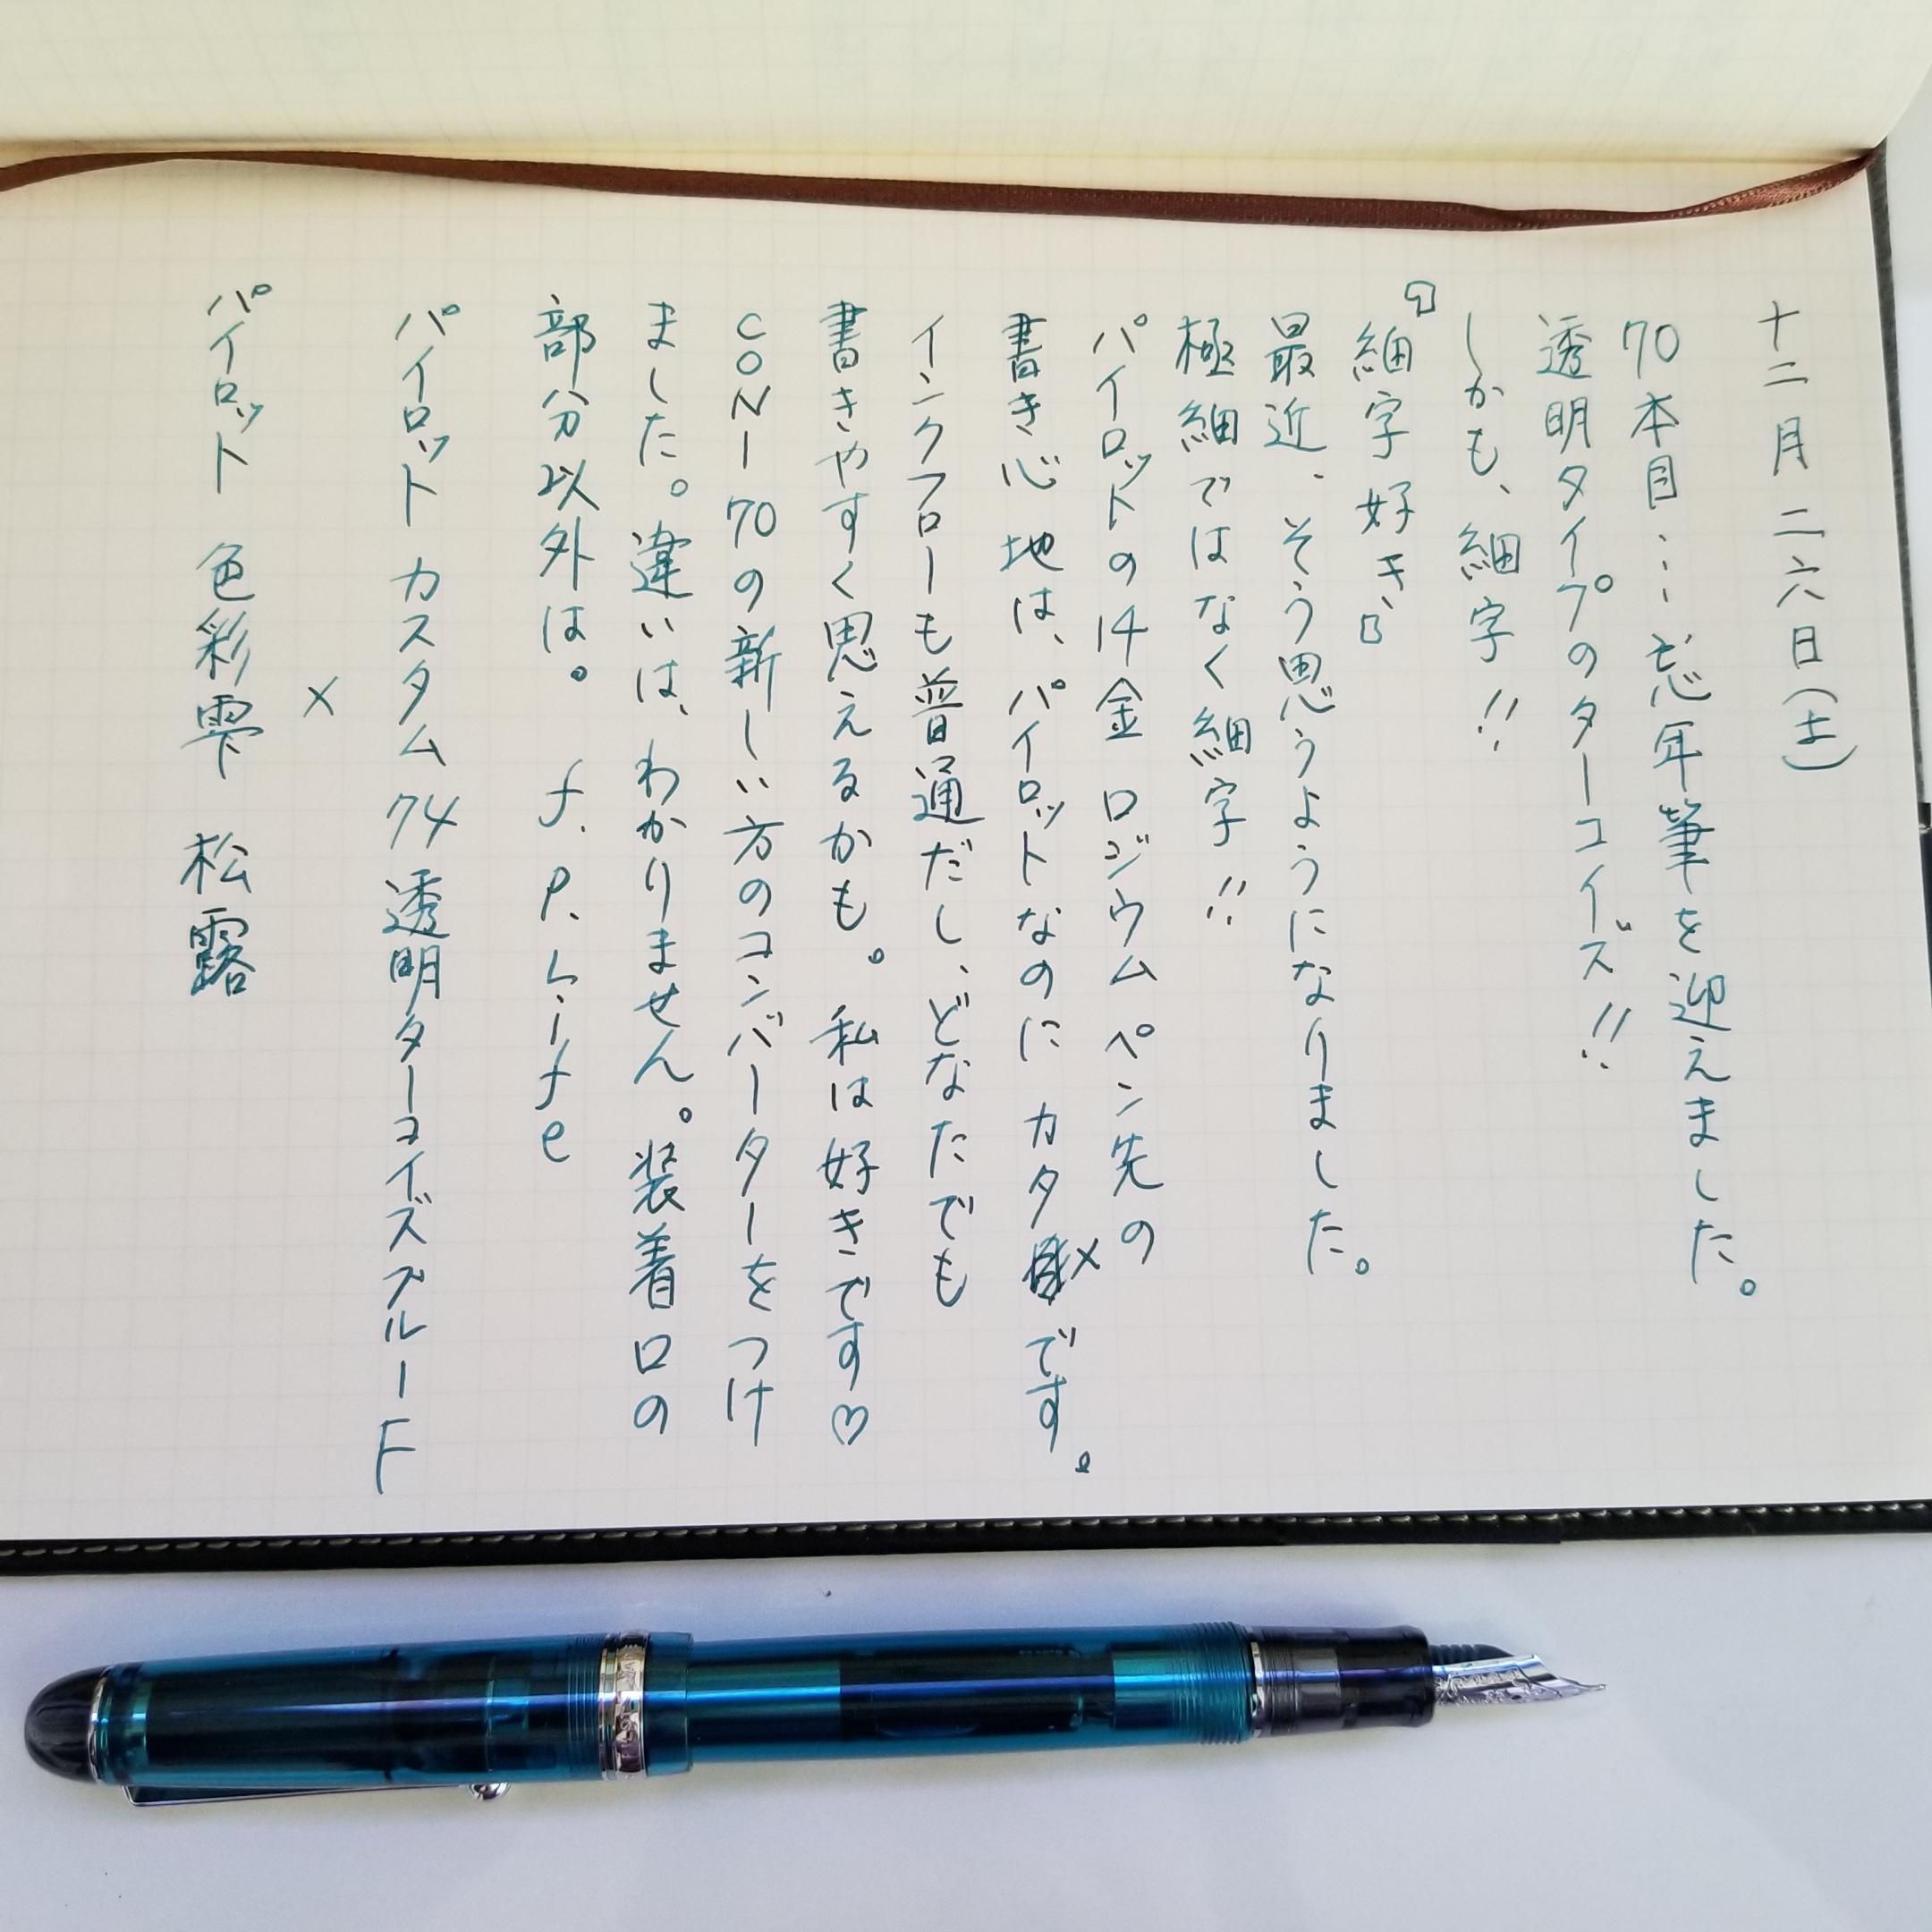 十二月二六日(土)
70本目… 忘年筆を迎えました。
透明タイプのターコイズ!!
しかも、細字!!
『細字好き』
最近、そう思うようになりました。
極細ではなく細字!!
パイロットの14金 ロジウム ペン先の
書き心地は、パイロットなのに カタ×です。
インクフローも普通だし、どなたでも
書きやすく思えるかも。私は好きです♡
CON-70の新しい方のコンバーターをつけ
ました。違いは、わかりません。装着口の
部分以外は。 f. P. Life
パイロット カスタム 74 透明ターコイズブルー F
×
パイロット 色彩雫 松露